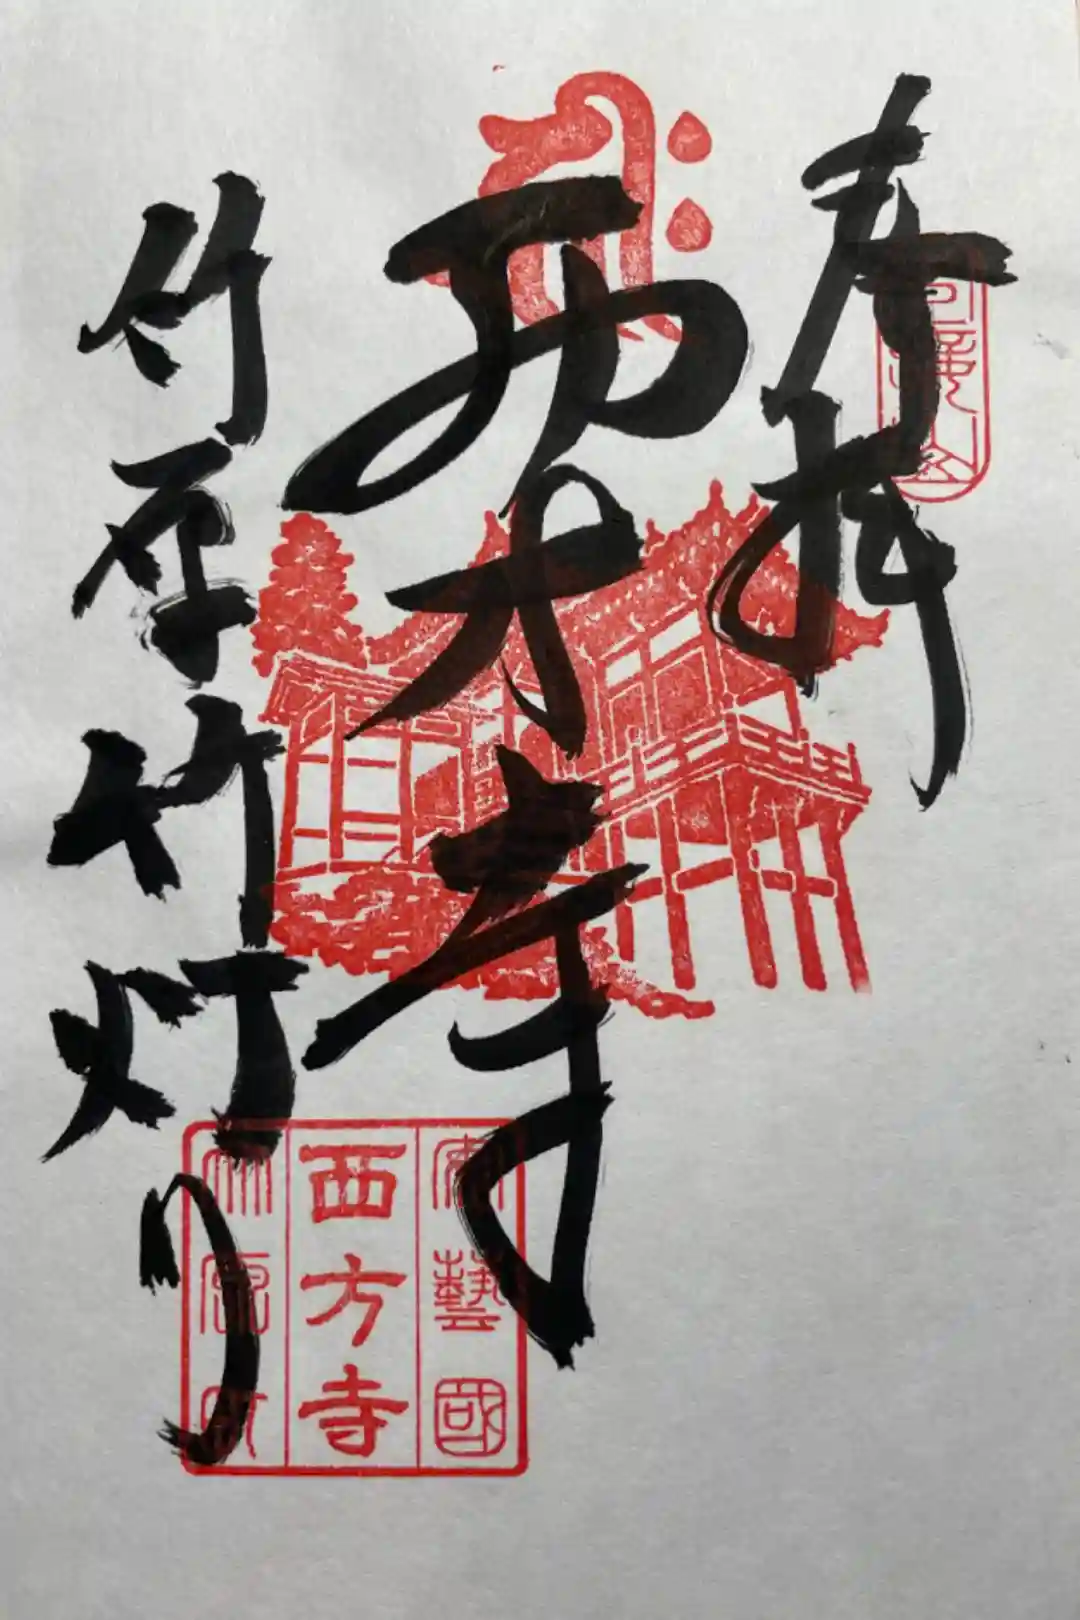 奉拝
西方寺
竹原竹灯り
安藝國
西方寺
竹原町